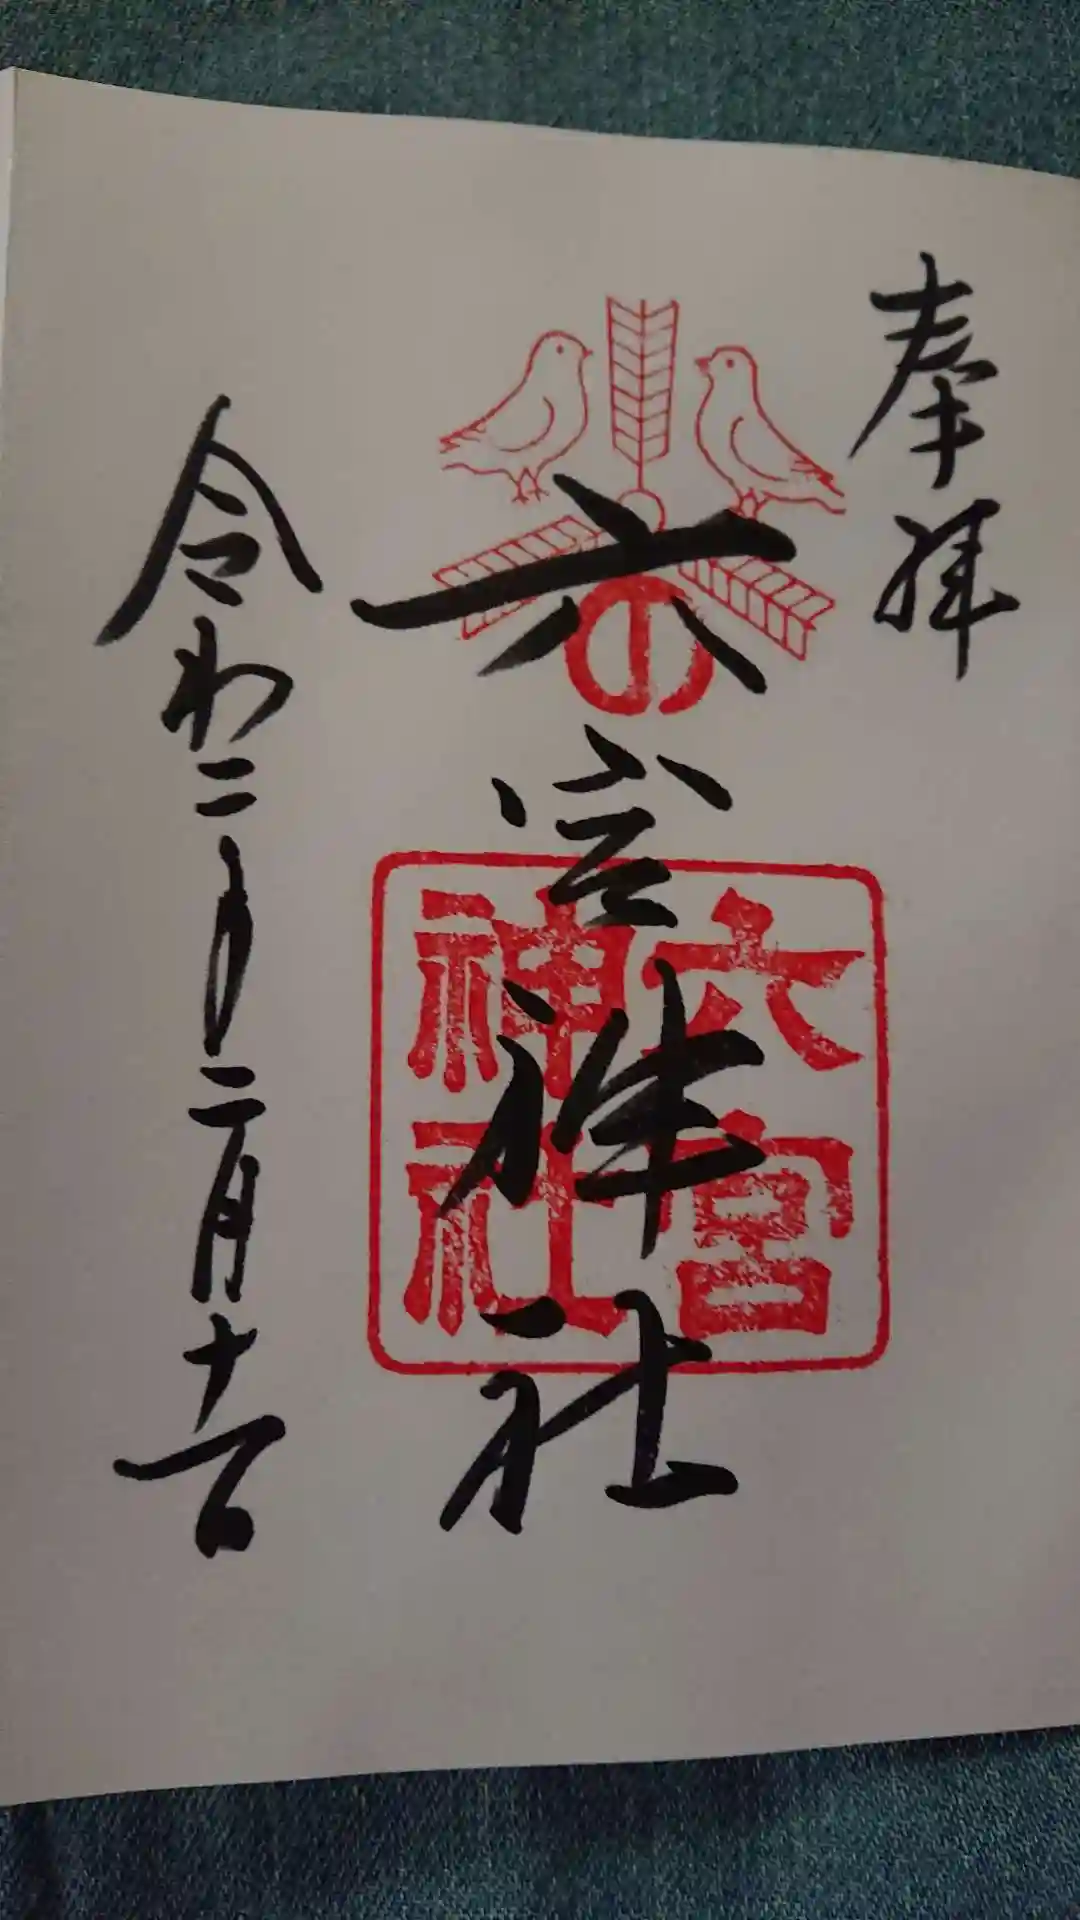 奉拝
六宮神社
の
六宮
神社
令和二年二月十一日